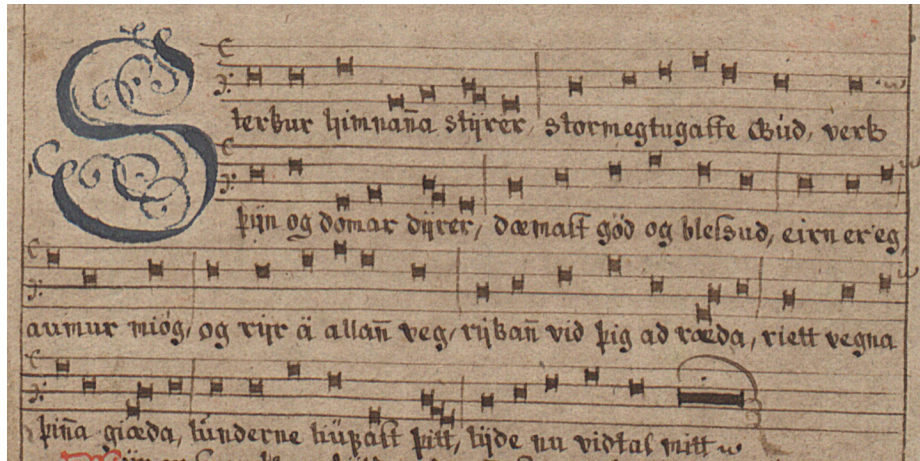 Sterkur himnan̄a stÿrer, stormegtugaste Gud, verk
þÿn og domar dÿrer, dæmast göd og blessud, eirn er eg
aumur miög, og rÿr ä allan̄ veg, rÿkan̄ vid þig ad ræda, riett vegna
þin̄a giæda, lüderne liüfast þitt, lÿde nu vidtal mitt